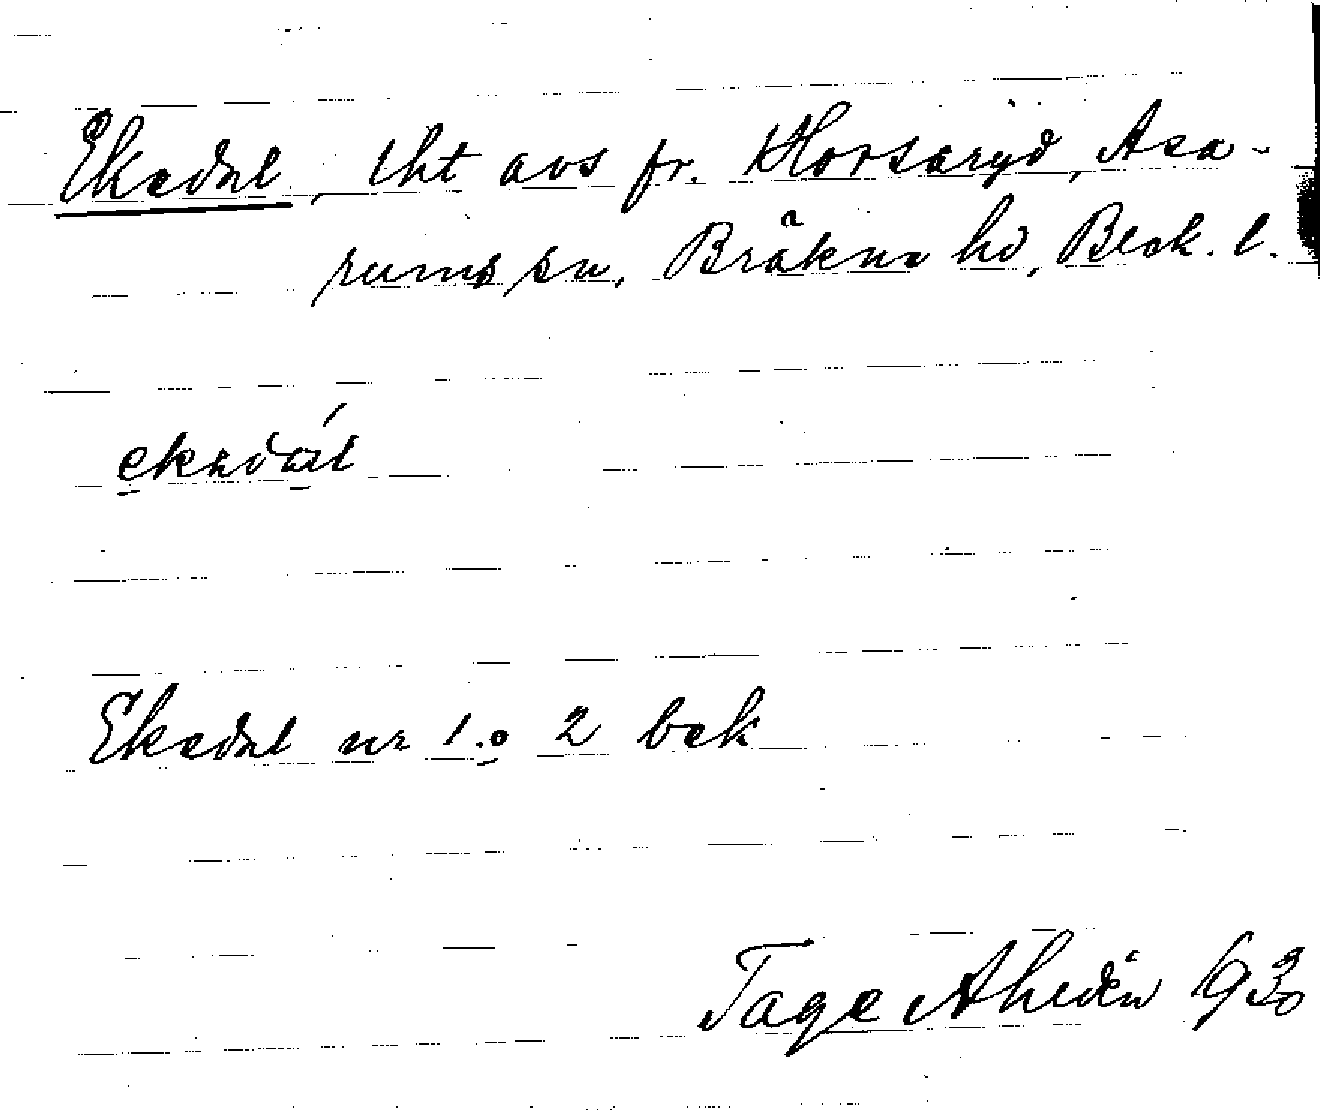 Ekedal, lht avs fr. Horsaryd, Asa-
rums sn, Bräkne hd, Blek. l.
ekadál
Ekedal nr 1 o 2 bek
Tage Ahldén 1930